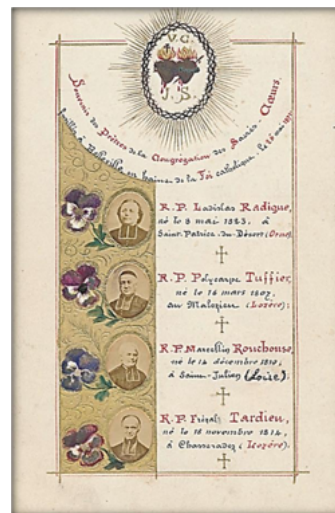 V.C.
J.S.
Souvenir des Prêtres de la Congrégation des Sacrés-Cœurs,
fusillés à Belleville en haine de la Foi catholique, le 26 mai 1871.
R.P. Ladislas Radigue,
né le 8 mai 1823, à
Saint-Patrice-du-Désert (Orne)
R.P. Polycarpe Tuffier,
né le 16 mars 1807,
au Malzieu (Lozère);
R.P. Marcellin Rouchouse,
né le 14 décembre 1810,
à Saint-Julien (Loire);
R.P. Frézal Tardieu,
né le 18 novembre 1814,
à Chasseradez (Lozère).